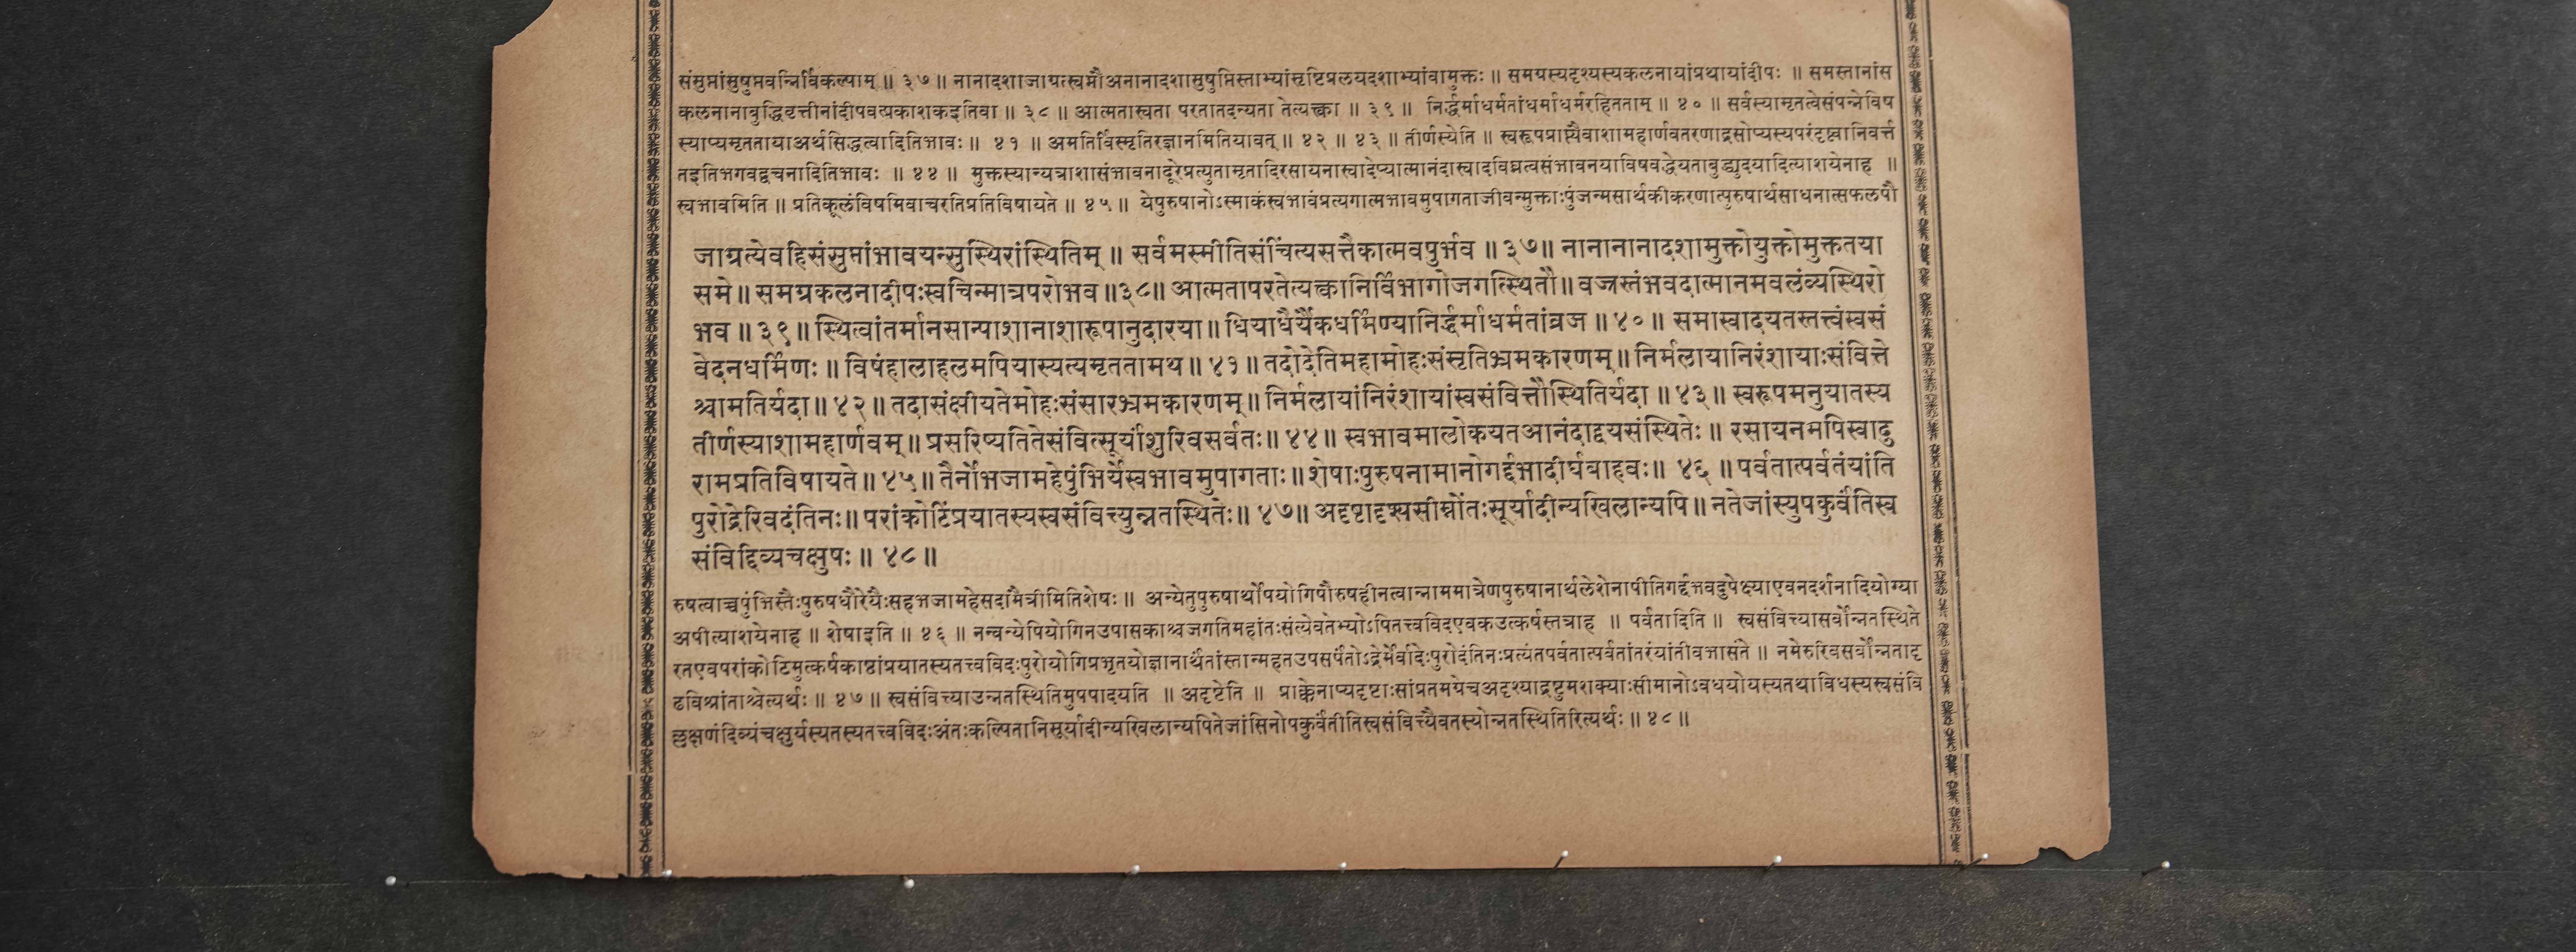 संसुप्तांसुषुप्तवन्निर्विकल्पाम् ॥ ३७ ॥ नानादशाजाग्रत्स्वप्नौअनानादशासुषुप्तिस्ताभ्यांसृष्टिप्रलयदशाभ्यांवामुक्तः ॥ समग्रस्यदृश्यस्यकलनायांप्रथायांदीपः ॥ समस्तानांस
कलनानाबुद्धिवृत्तीनांदीपवत्प्रकाशकइतिवा ॥ ३८ ॥ आत्मतास्वता परतातदन्यता तेत्यक्त्वा ॥ ३९ ॥ निर्द्धर्माधर्मतांधर्माधर्मरहितताम् ॥ ४० ॥ सर्वस्यामृतत्वेसंपन्नेविष
स्याप्यमृततायाअर्थसिद्धत्वादितिभावः ॥ ४१ ॥ अमतिर्विस्मृतिरज्ञानमितियावत् ॥ ४२ ॥ ४३ ॥ तीर्णस्येति ॥ स्वरूपप्राप्त्यैवाशामहार्णवतरणाद्रसोप्यस्यपरंदृष्ट्वानिवर्त्त
तइतिभगवद्वचनादितिभावः ॥ ४४ ॥ मुक्तस्यान्यत्राशासंभावनादूरेप्रत्युतामृतादिरसायनास्वादेप्यात्मानंदास्वादविघ्नत्वसंभावनयाविषवद्धेयताबुद्ध्युदयादित्याशयेनाह ॥
स्वभावमिति ॥ प्रतिकूलंविषमिवाचरतिप्रतिविषायते ॥ ४५ ॥ येपुरुषानोऽस्माकंस्वभावंप्रत्यगात्मभावमुपागताजीवन्मुक्ताःपुंजन्मसार्थकीकरणात्पुरुषार्थसाधनात्सफलपौ
जाग्रत्येवहिसंसुप्तांभावयन्सुस्थिरांस्थितिम् ॥ सर्वमस्मीतिसंचिंत्यसत्तैकात्मवपुर्भव ॥ ३७॥ नानानानादशामुक्तोयुक्तोमुक्ततया
समे ॥ समग्रकलनादीपःस्वचिन्मात्रपरोभव ॥३८॥ आत्मतापरतेत्यक्त्वानिर्विभागोजगत्स्थितौ ॥ वज्रस्तंभवदात्मानमवलंब्यस्थिरो
भव ॥ ३९ ॥ स्थित्वांतर्मानसान्पाशानाशारूपानुदारया ॥ धियाधैर्यैकधर्मिण्यानिर्द्धर्माधर्मतांव्रज ॥ ४० ॥ समास्वादयतस्तत्त्वंस्वसं
वेदनधर्मिणः ॥ विषंहालाहलमपियास्यत्यमृततामथ ॥ ४१ ॥ तदोदेतिमहामोहःसंसृतिभ्रमकारणम् ॥ निर्मलायानिरंशायाःसंवित्ते
श्चामतिर्यदा ॥ ४२ ॥ तदासंक्षीयतेमोहःसंसारभ्रमकारणम् ॥ निर्मलायांनिरंशायांस्वसंवित्तौस्थितिर्यदा ॥ ४३ ॥ स्वरूपमनुयातस्य
तीर्णस्याशामहार्णवम् ॥ प्रसरिष्यतितेसंवित्सूर्यांशुरिवसर्वतः ॥ ४४ ॥ स्वभावमालोकयतआनंदाद्वयसंस्थितेः ॥ रसायनमपिस्वादु
रामप्रतिविषायते ॥ ४५ ॥ तैर्नोभजामहेपुंभिर्येस्वभावमुपागताः ॥ शेषाःपुरुषनामानोगर्द्दभादीर्घबाहवः ॥ ४६ ॥ पर्वतात्पर्वतंयांति
पुरोद्रेरिवदंतिनः ॥ परांकोटिंप्रयातस्यस्वसंवित्त्युन्नतस्थितेः ॥ ४७॥ अदृष्टादृश्यसीम्नोंतःसूर्यादीन्यखिलान्यपि ॥ नतेजांस्युपकुर्वंतिस्व
संविद्दिव्यचक्षुषः ॥ ४८ ॥
रुषत्वाच्चपुंभिस्तैःपुरुषधौरेयैःसहभजामहेसदामैत्रीमितिशेषः ॥ अन्येतुपुरुषार्थोपयोगिपौरुषहीनत्वान्नाममात्रेणपुरुषानार्थलेशेनापीतिगर्द्दभवदुपेक्ष्याएवनदर्शनादियोग्या
अपीत्याशयेनाह ॥ शेषाइति ॥ ४६ ॥ नन्वन्येपियोगिनउपासकाश्चजगतिमहांतःसंत्येवतेभ्योऽपितत्त्वविदएवकउत्कर्षस्तत्राह ॥ पर्वतादिति ॥ स्वसंवित्त्यासर्वोन्नतस्थिते
रतएवपरांकोटिमुत्कर्षकाष्ठांप्रयातस्यतत्त्वविदःपुरोयोगिप्रभृतयोज्ञानार्थंतांस्तान्महतउपसर्पंतोऽद्रेर्मेर्वादेःपुरोदंतिनःप्रत्यंतपर्वतात्पर्वतांतरंयांतीवभासंते ॥ नमेरुरिवसर्वोन्नतादृ
ढविश्रांताश्चेत्यर्थः ॥ ४७ ॥ स्वसंवित्त्याउन्नतस्थितिमुपपादयति ॥ अदृष्टेति ॥ प्राक्केनाप्यदृष्टाःसांप्रतमग्रेचअदृश्याद्रष्टुमशक्याःसीमानोऽवधयोयस्यतथाविधस्यस्वसंवि
ल्लक्षणंदिव्यंचक्षुर्यस्यतस्यतत्त्वविदःअंतःकल्पितानिसूर्यादीन्यखिलान्यपितेजांसिनोपकुर्वंतीतिस्वसंवित्त्यैवतस्योन्नतस्थितिरित्यर्थः ॥ ४८ ॥